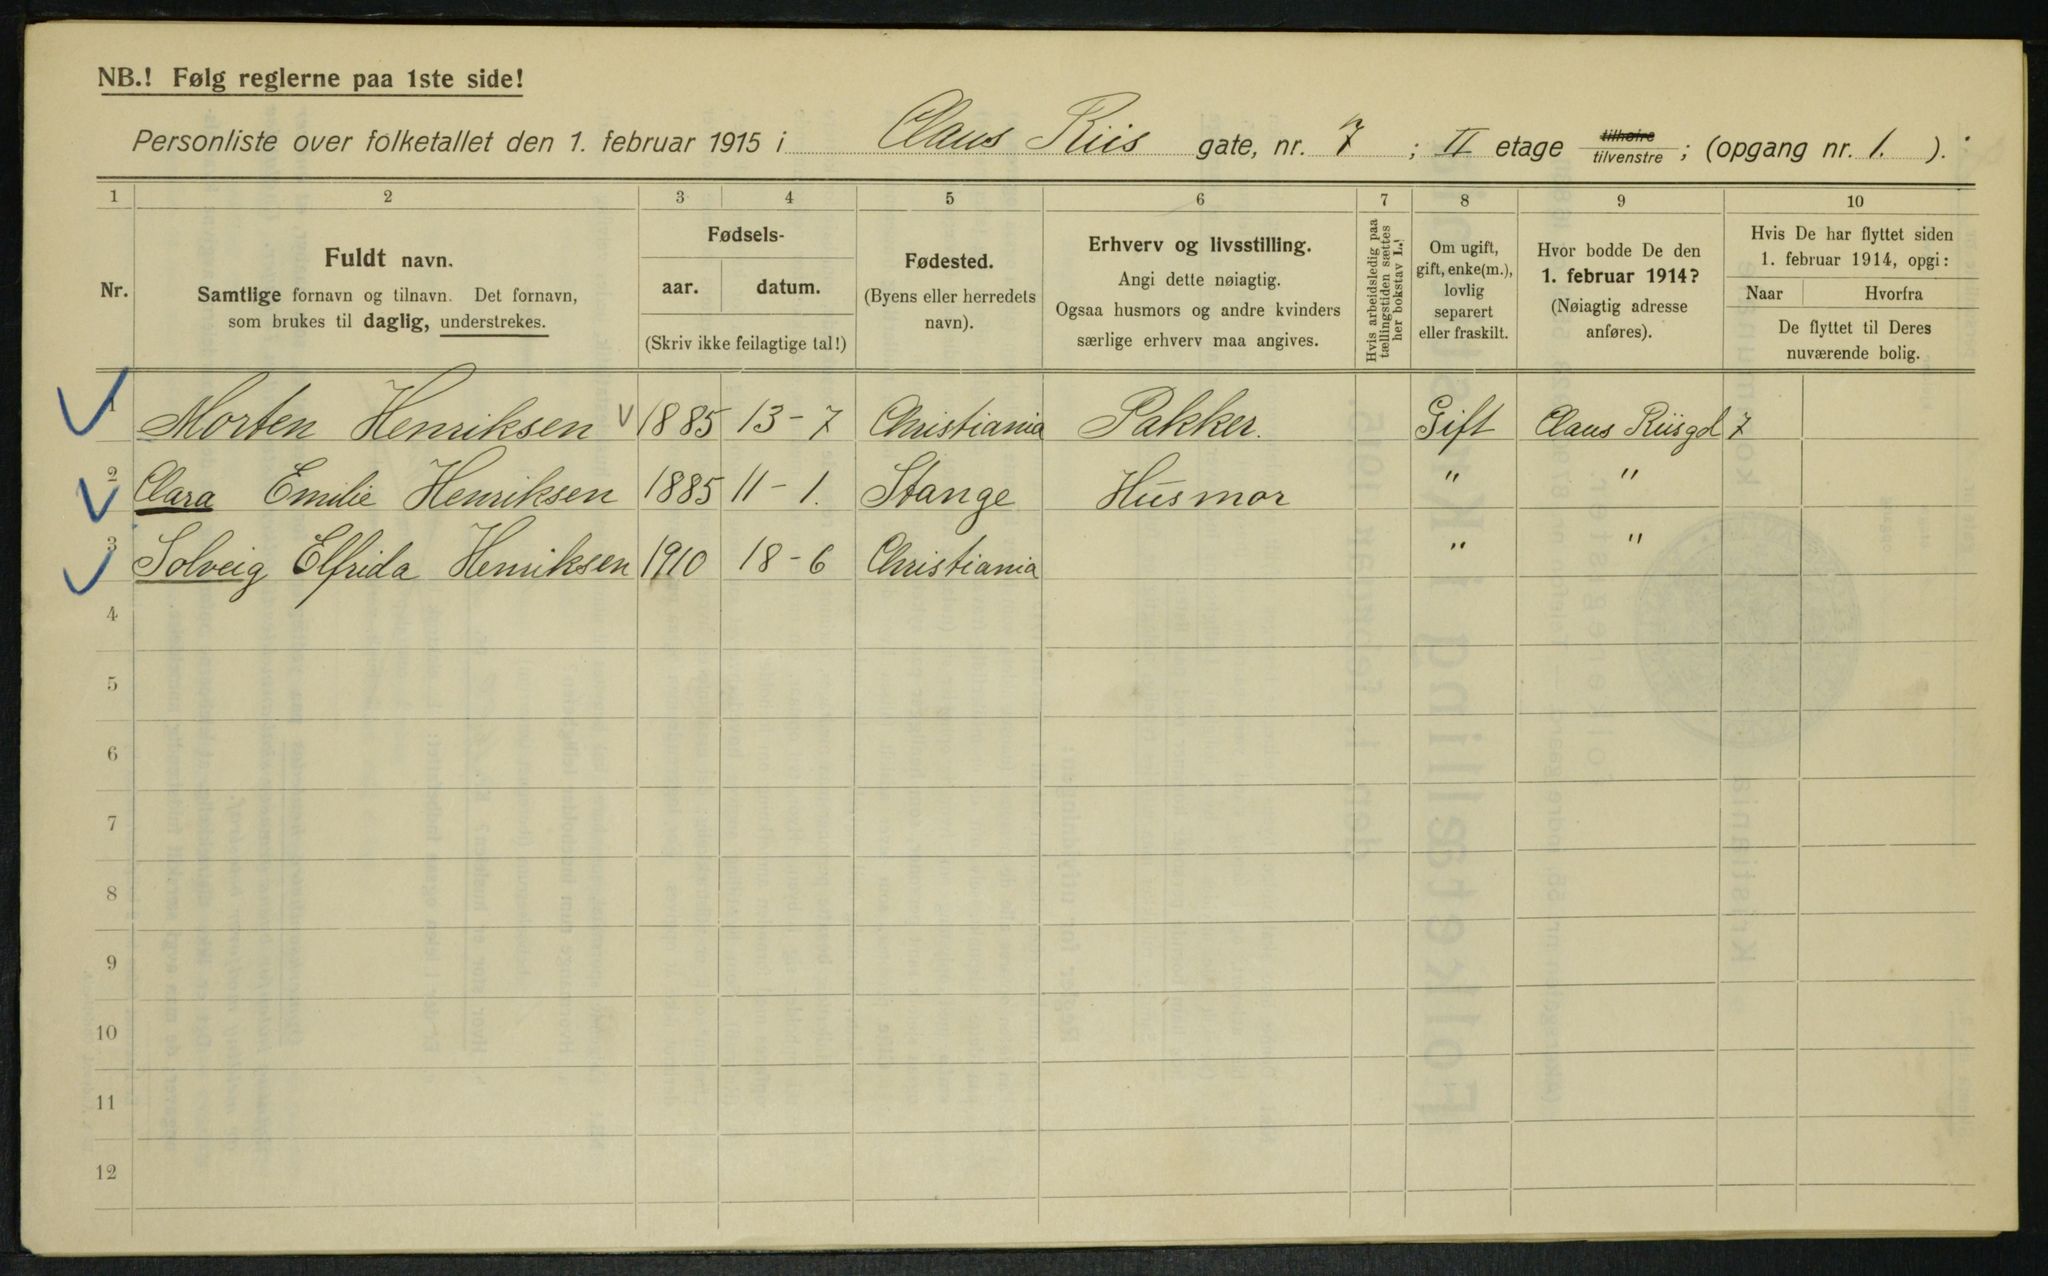 NB.! Følg reglerne paa 1ste side!
Personliste over folketallet den 1. februar 1915 i Claus Riis gate, nr. 7 ; II etage tilhøire tilvenstre ; (opgang nr. 1. ).
1 2 3 4 5 6 7 8 9 10
Nr.
Fuldt navn.
Samtlige fornavn og tilnavn. Det fornavn,
som brukes til daglig, understrekes.
Fødsels-
aar. datum.
(Skriv ikke feilagtige tal!)
Fødested.
(Byens eller herredets
navn).
Erhverv og livsstilling.
Angi dette nøiagtig.
Ogsaa husmors og andre kvinders
særlige erhverv maa angives.
Hvis arbeidsledig paa
tællingstiden sættes
her bokstav L.!
Om ugift,
gift, enke(m.),
lovlig
separert
eller fraskilt.
Hvor bodde De den
1. februar 1914?
(Nøiagtig adresse
anføres).
Hvis De har flyttet siden
1. februar 1914, opgi:
Naar Hvorfra
De flyttet til Deres
nuværende bolig.
1 Morten Henriksen 1885 13-7 Christiania Pakker. Gift Claus Riisgd 7
2 Clara Emilie Henriksen 1885 11-1. Stange Husmor " "
3 Solveig Elfrida Henriksen 1910 18-6 Christiania " "
4
5
6
7
8
9
10
11
12